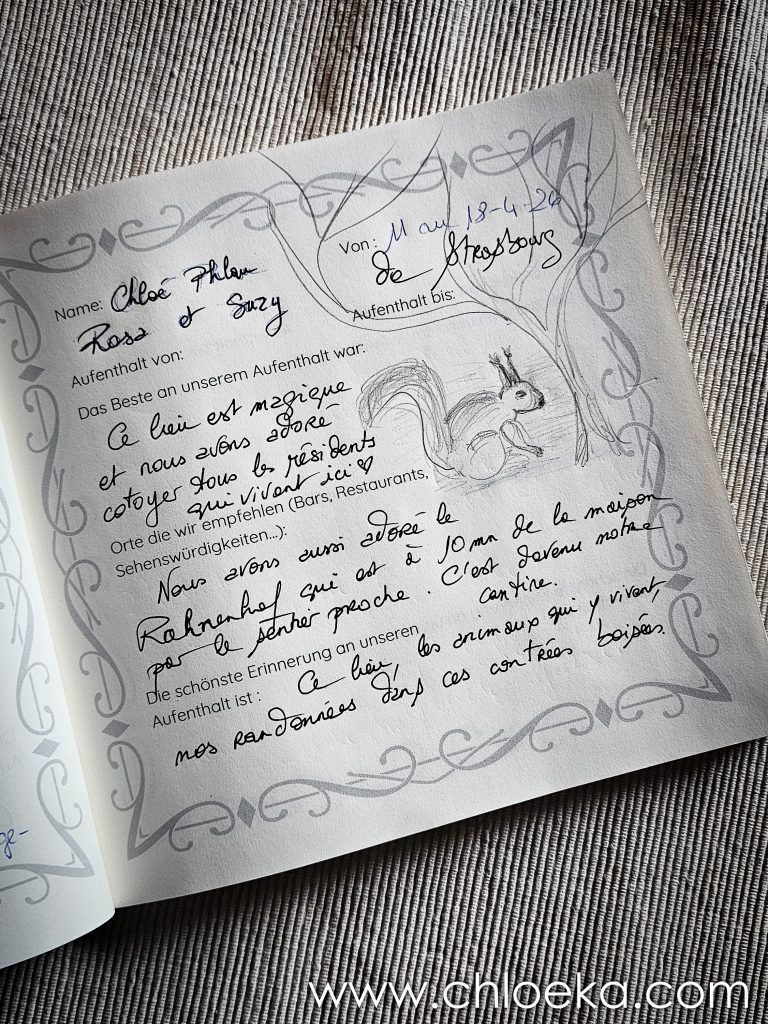 Von : 11 au 18-4-26
de Strasbourg
Name: Chloé
Rosa et Suzy
Aufenthalt bis:
Aufenthalt von:
Das Beste an unserem Aufenthalt war:
Ce lieu est magique
et nous avons adoré
cotoyer tous les résidents
qui vivent ici ♡
Orte die wir empfehlen (Bars, Restaurants,
Sehenswürdigkeiten...):
Nous avons aussi adoré le
Rahnenhof qui est à 10 mn de la maison
par le sentier proche. C'est devenu notre
cantine.
Die schönste Erinnerung an unseren
Aufenthalt ist : Ce lieu, les animaux qui y vivent,
nos randonnées dans ces contrées boisées.
ge-
www.chloeka.com